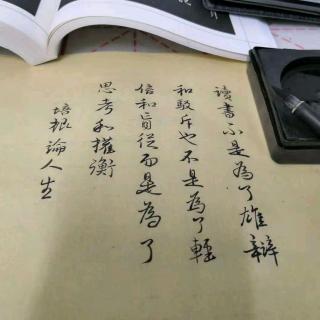 讀書不是為了雄辯
和駁斥也不是為了輕
信和盲從而是為了
思考和權衡
培根論人生